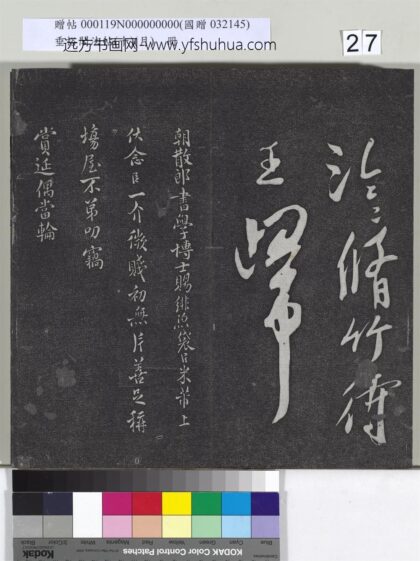 贈帖 000119N000000000(國贈 032145)
远方书画网-www.yfshuhua.com
27
泠〻脩竹待
王歸
朝散郎書學博士賜緋魚袋臣米芾上
伏念臣一介微賤初無片善足稱
場屋不第叨竊
賞延偶當輪
Blue Cyan Green Yellow Red Magenta White 3/Color Black
KODAK Color Control Patches
Kodak